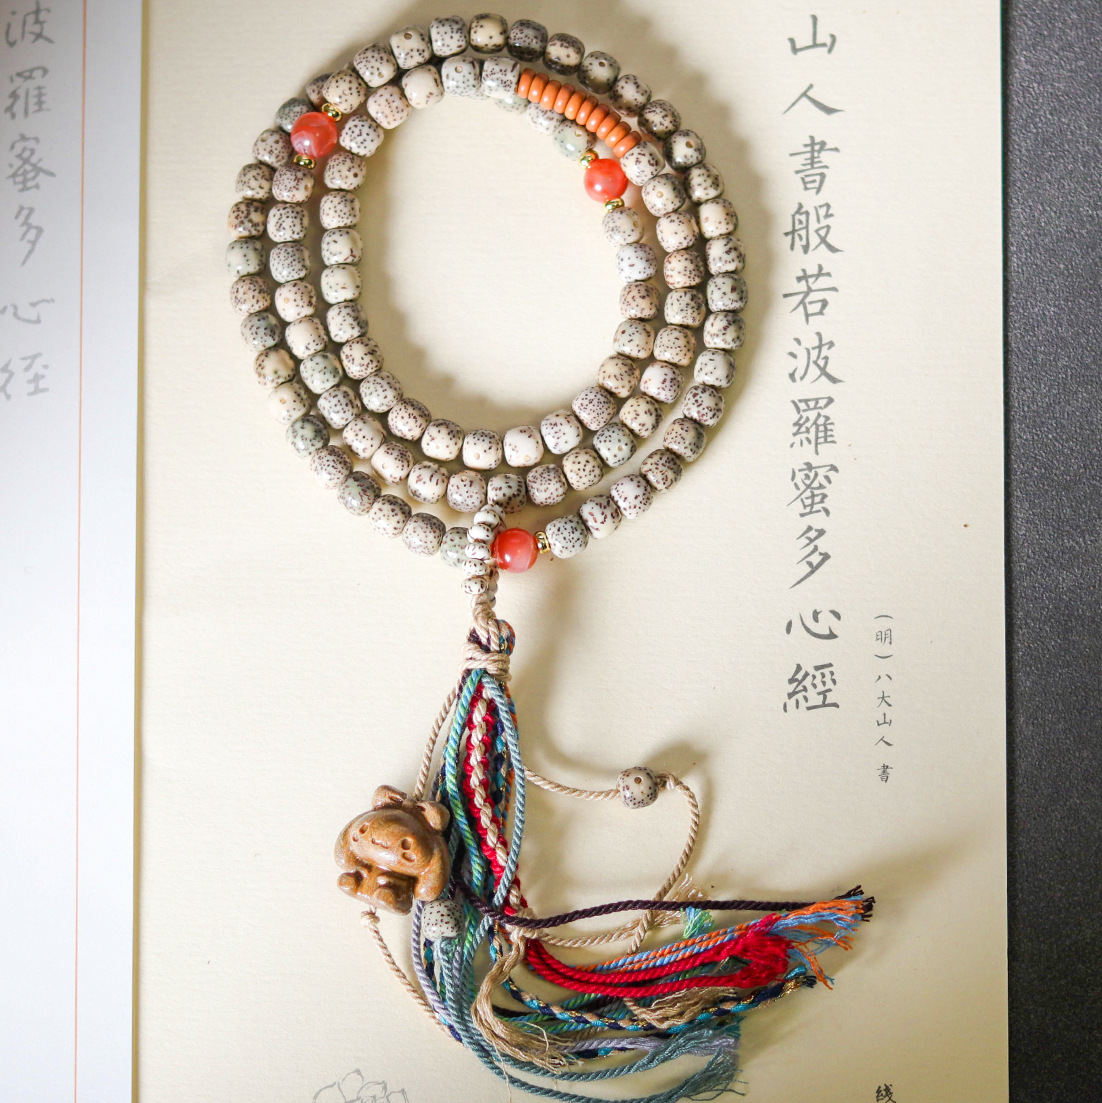 山人書般若波羅蜜多心經
（明）八大山人書
綫
波羅蜜多心经